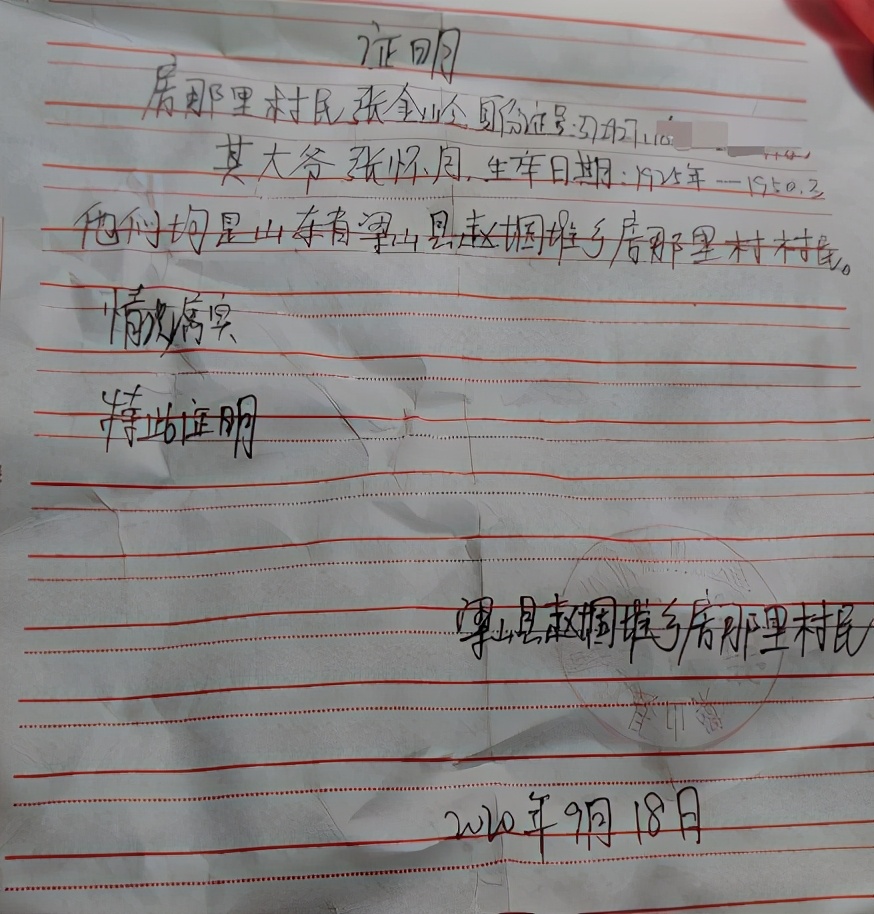 证明
居那里村民张金岭身份证号:372927
其大爷张怀月.生年日期:1925年—1950.2
他们均是山东省梁山县赵堌堆乡居那里村村民。
情况属实
特此证明
梁山县赵堌堆乡居那里村民
2020年9月18日